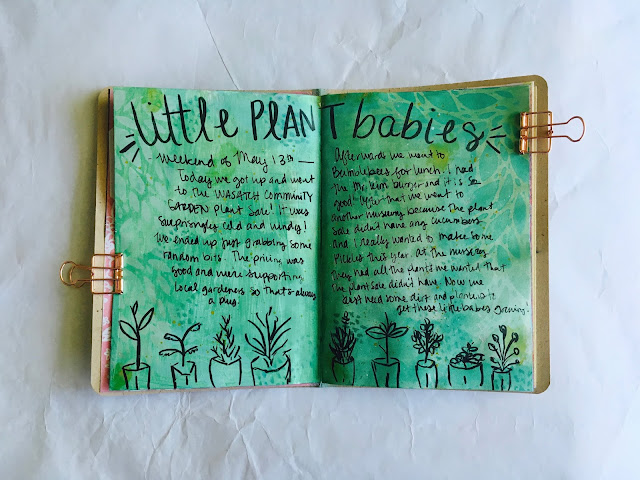 Little PLANT babies
weekend of May 13th —
Today we got up and went
to the WASATCH COMMUNITY
GARDEN Plant Sale! It was
surprisingly cold and windy!
We ended up just grabbing some
random bits. The pricing was
good and were supporting
local gardeners so that's always
a plus!
Afterwards we went to
for lunch. I had
the burger and it is so
good. After that we went to
another nursery because the plant
sale didn't have any cucumbers
and I really wanted to make some
pickles this year. At the nursery
they had all the plants we wanted that
the plant sale didn't have. Now we
just need some dirt and planters to
get these little babies growing!